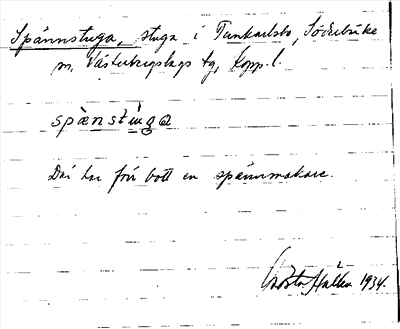 Spännstuga, stuga i Tunkarlsbo, Söderbärke
sn, Västerbergslags tg, Kopp. l.
spænstụga
Där har förr bott en spännmakare.
Gösta Hallen 1934.